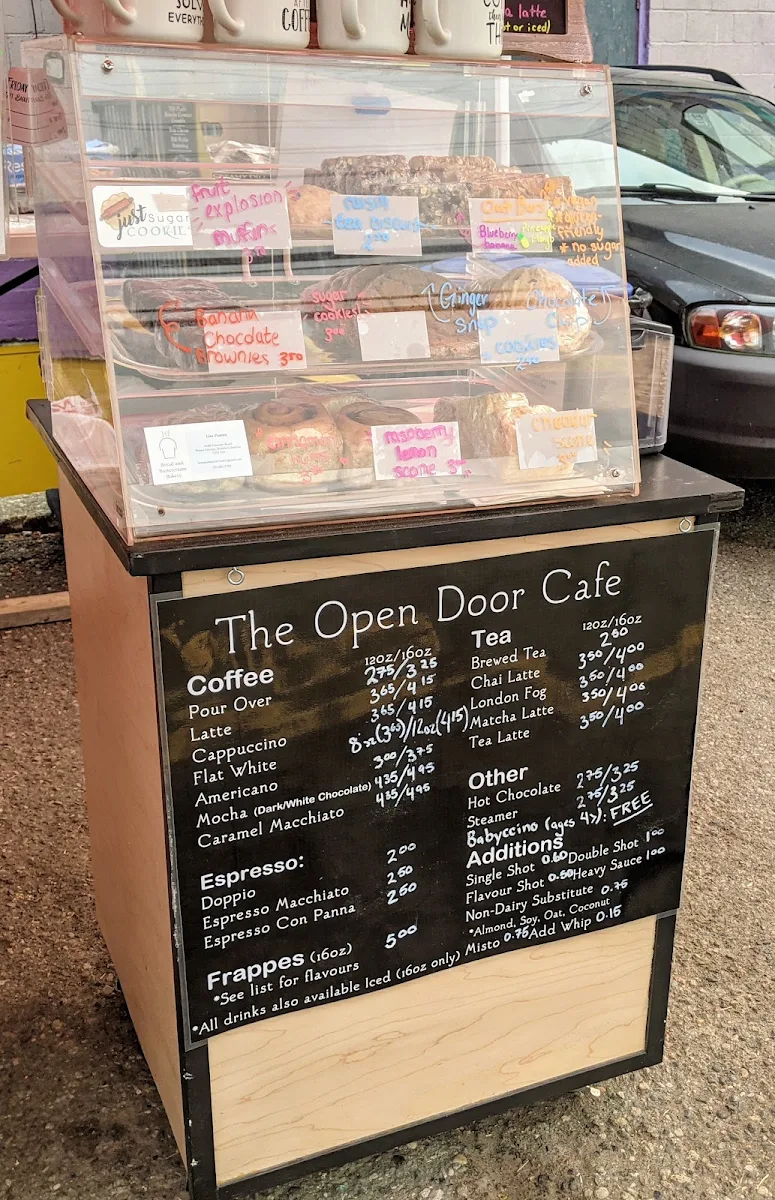 SOLV
EVERYTH
COFF
a latte
ot or iced)
FRIDAY
just sugar
COOKIE
fruit
explosion
muffin
raisin
tea biscuit
2 50
Blueberry
banana
friendly
* no sugar
added
Banana
Chocolate
Brownies 3 50
sugar
cookies
3 00
Ginger
snap
Chocolate
Chip
cookies
2 50
Bread and
Butterstone
Bakery
cinnamon
raspberry
lemon
scone
cheddar
scone
The Open Door Cafe
Coffee 12oz/16oz
Pour Over 2 75/3 25
Latte 3 65/4 15
Cappuccino 3 65/4 15
Flat White 8oz(3 65)/12oz(4 15)
Americano 3 00/3 75
Mocha (Dark/White Chocolate) 4 35/4 95
Caramel Macchiato 4 35/4 95
Espresso:
Doppio 2 00
Espresso Macchiato 2 50
Espresso Con Panna 2 50
Frappes (16oz) 5 00
*See list for flavours
*All drinks also available Iced (16oz only)
Tea 12oz/16oz
Brewed Tea 2 50
Chai Latte 3 50/4 00
London Fog 3 50/4 00
Matcha Latte 3 50/4 00
Tea Latte 3 50/4 00
Other
Hot Chocolate 2 75/3 25
Steamer 2 75/3 25
Babyccino (ages 4>): FREE
Additions
Single Shot 0.60 Double Shot 1 00
Flavour Shot 0.50 Heavy Sauce 1 00
Non-Dairy Substitute 0.75
*Almond, Soy, Oat, Coconut
Misto 0.75 Add Whip 0.15